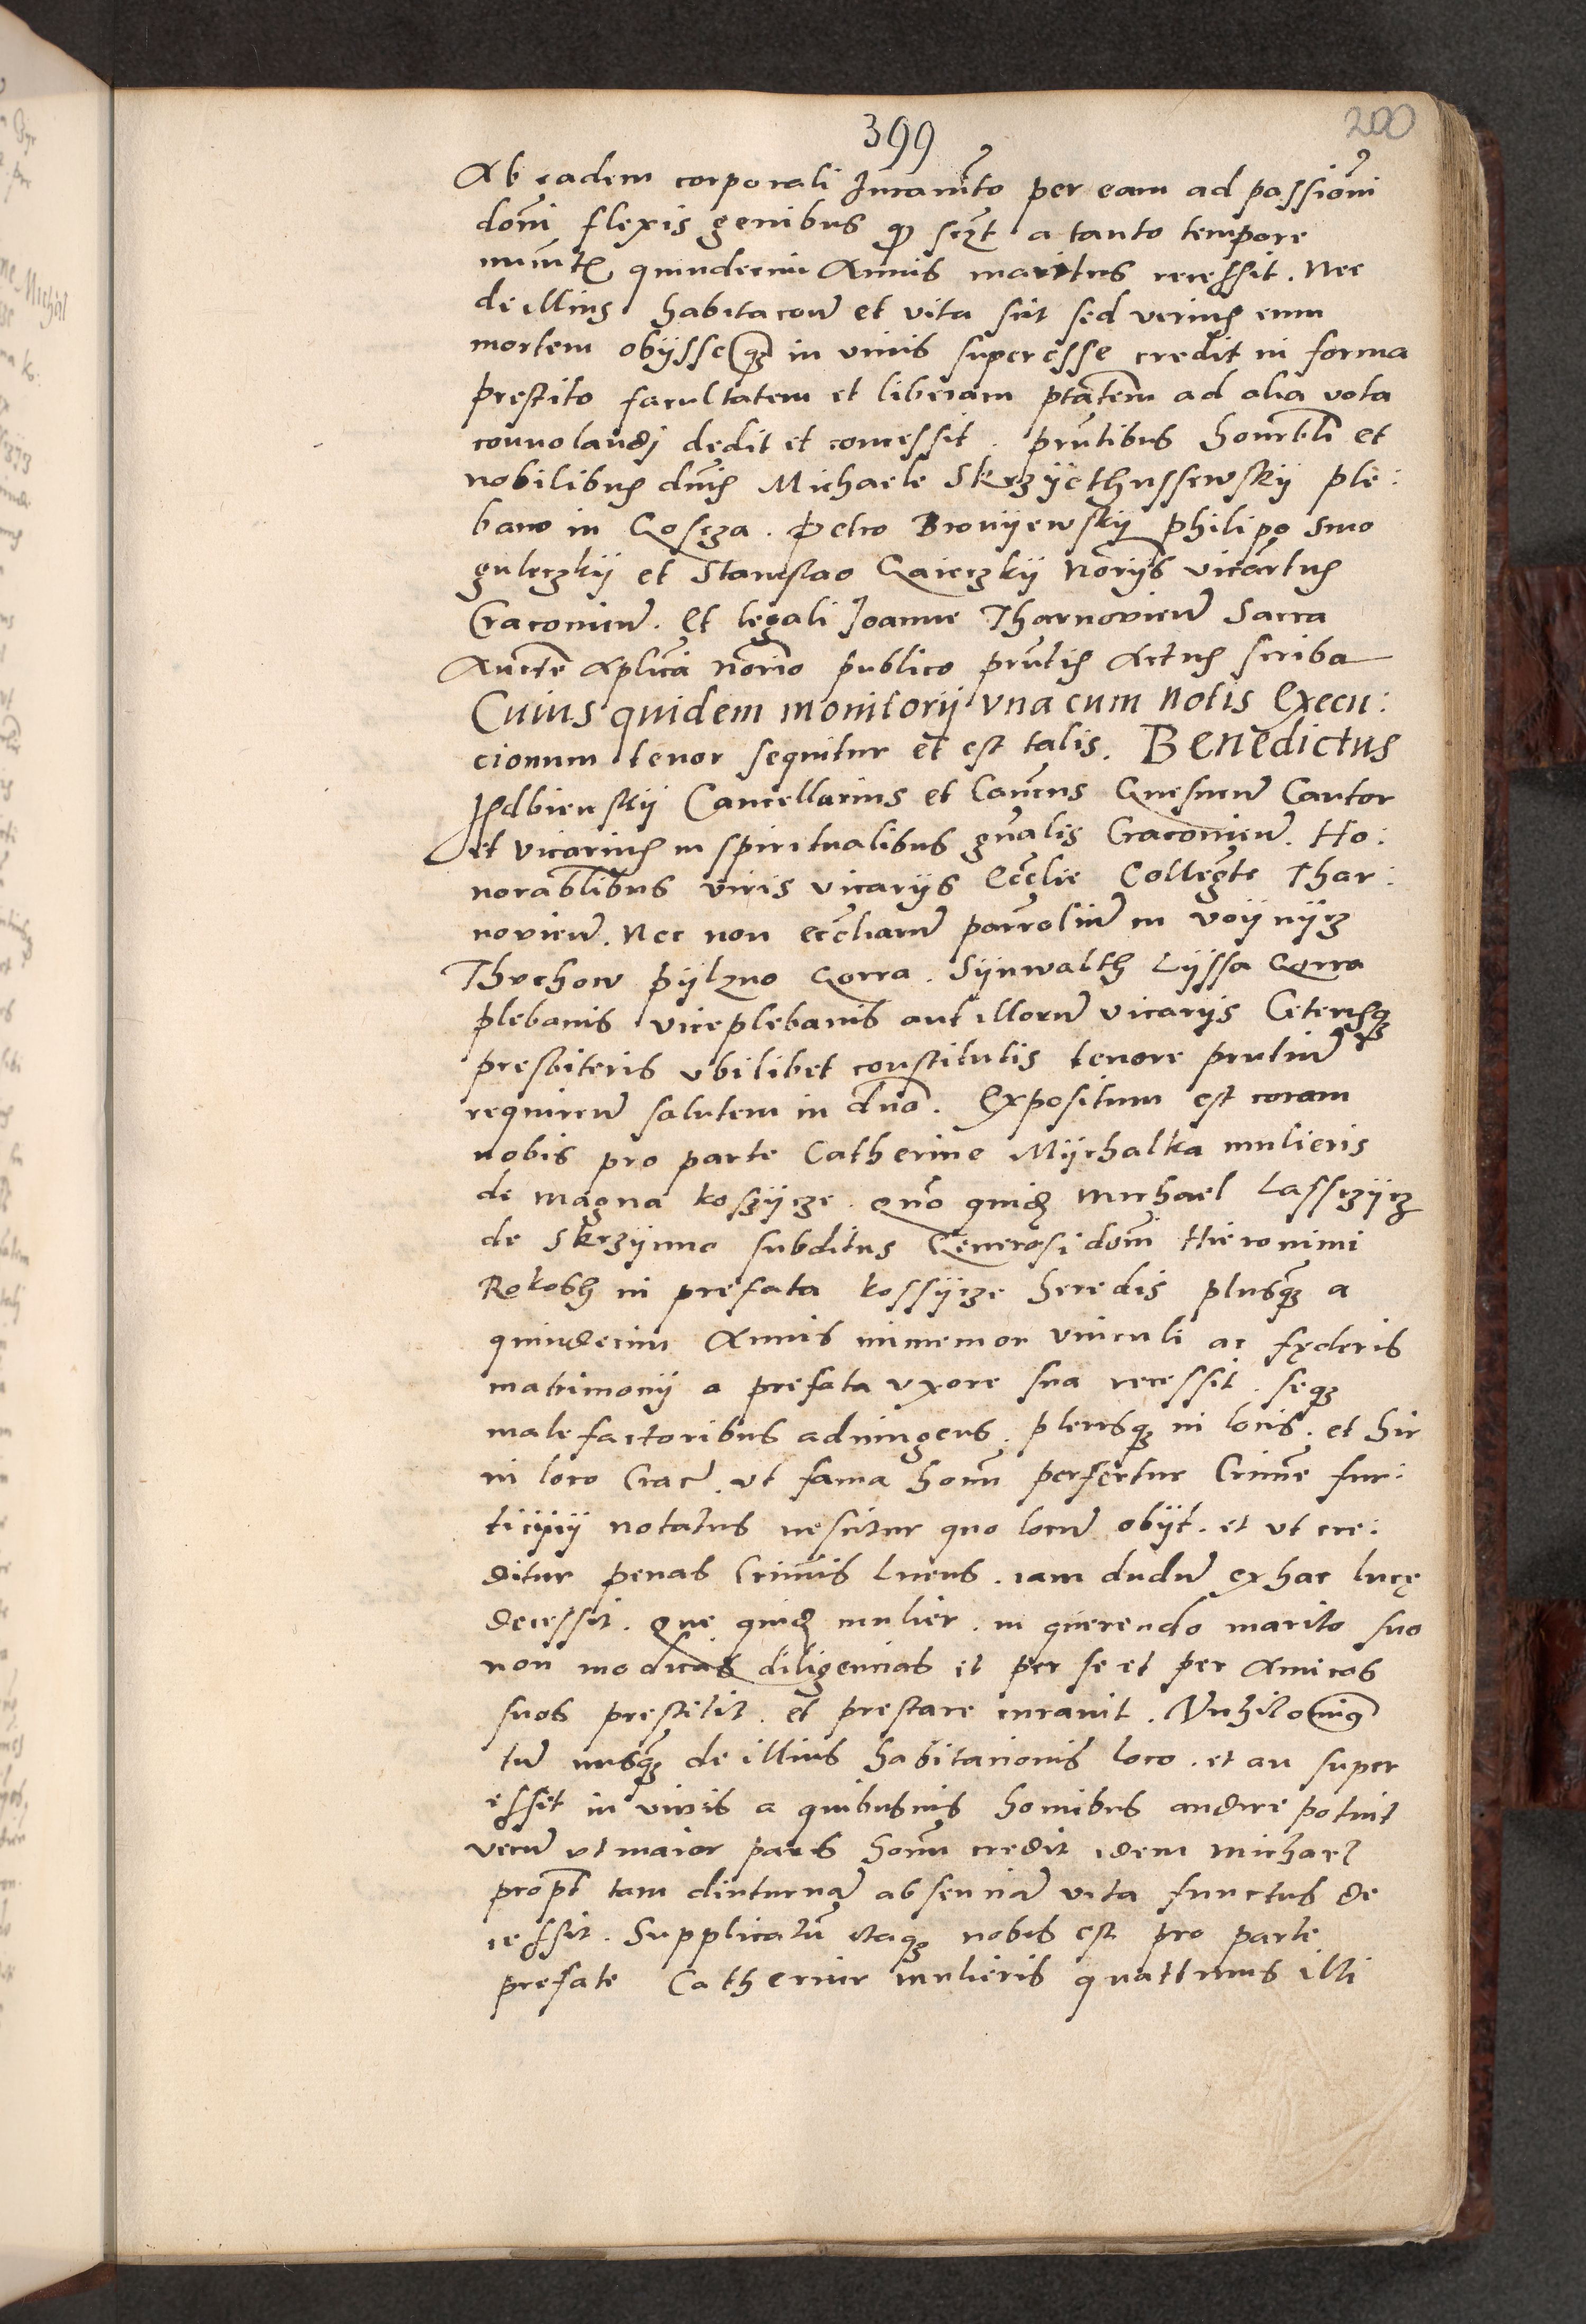 399
200
Ab eadem corporali Iuramto per eam ad passioni
domi flexis genibus qd sczt a tanto tempore
numtr quindecim Annis maritus recessit. Nec
de illius habitacone et vita scit sed verius eum
mortem obysse qz in vivis superesse credit in forma
prestito facultatem et liberam ptatem ad alia vota
convolandj dedit et concessit. prntibus honrbli et
nobilibus dnis Michaele Skrzÿethussewskÿ ple:
bano in Goscza. Petro Bronÿewskÿ philipo Smo
guleczkÿ et Stanislao Gaieczkÿ Norÿs vicartus
Cracovien. Et legali Joanne Tharnovien Sacra
Aucte Aplica Norio publico prntis Actus scriba
Cuius quidem monitorÿ vna cum notis Execu:
cionum tenor sequitur et est talis. Benedictus
Isdbienskÿ Cancellarius et CanCus Gnesnen Cantor
et vicarius in spiritualibus gnalis Cracovien. Ho:
norablibus viris vicarÿs Ecclie Collegte Thar:
novien. Nec non eccliarum parrolium in voÿnÿcz
Thuchow pÿlzno Gorra. Sÿnwalth Lÿssa Gorra
plebanis viceplebanis aut illorum vicarÿs Ceterisqz
presbiteris vbilibet constitutis tenore prntium
requiren salutem in dno. Expositum est coram
nobis pro parte Catherine Mÿchalka mulieris
de magna koszÿcze. Qno quidem Michael Lassczÿcz
de Skrzÿnno subditus Generosi domi Hieronimi
Rokosch in prefata kossÿcze heredis plusqz a
quindecim Annis immemor vinculi ac fęderis
matrimonÿ a prefata vxore sua recessit. seqz
malefactoribus adiungens. plerisqz in locis. et hic
in loco Crac. ut fama homi perfertur Crimne fur:
ticÿnÿ notatus nescitur quo locum obÿt. et ut cre:
ditur penas Criminis Luens. iam dudum ex hac lucę
decessit. Que quidem mulier. in querendo marito suo
non modicas diligencias et per se et per Amicos
suos prestitit. et prestare curavit. Nichilominus
tum nusqz de illius habitacionis loco. et an super
esset in vivis a quibusvis homibus audire potuit
verum ut maior pars homi credit idem Michael
propt tam diuturnam absenciam vita functus de
cessit. Supplicatum itaqz nobis est pro parte
prefate Catherine mulieris quatenus illi